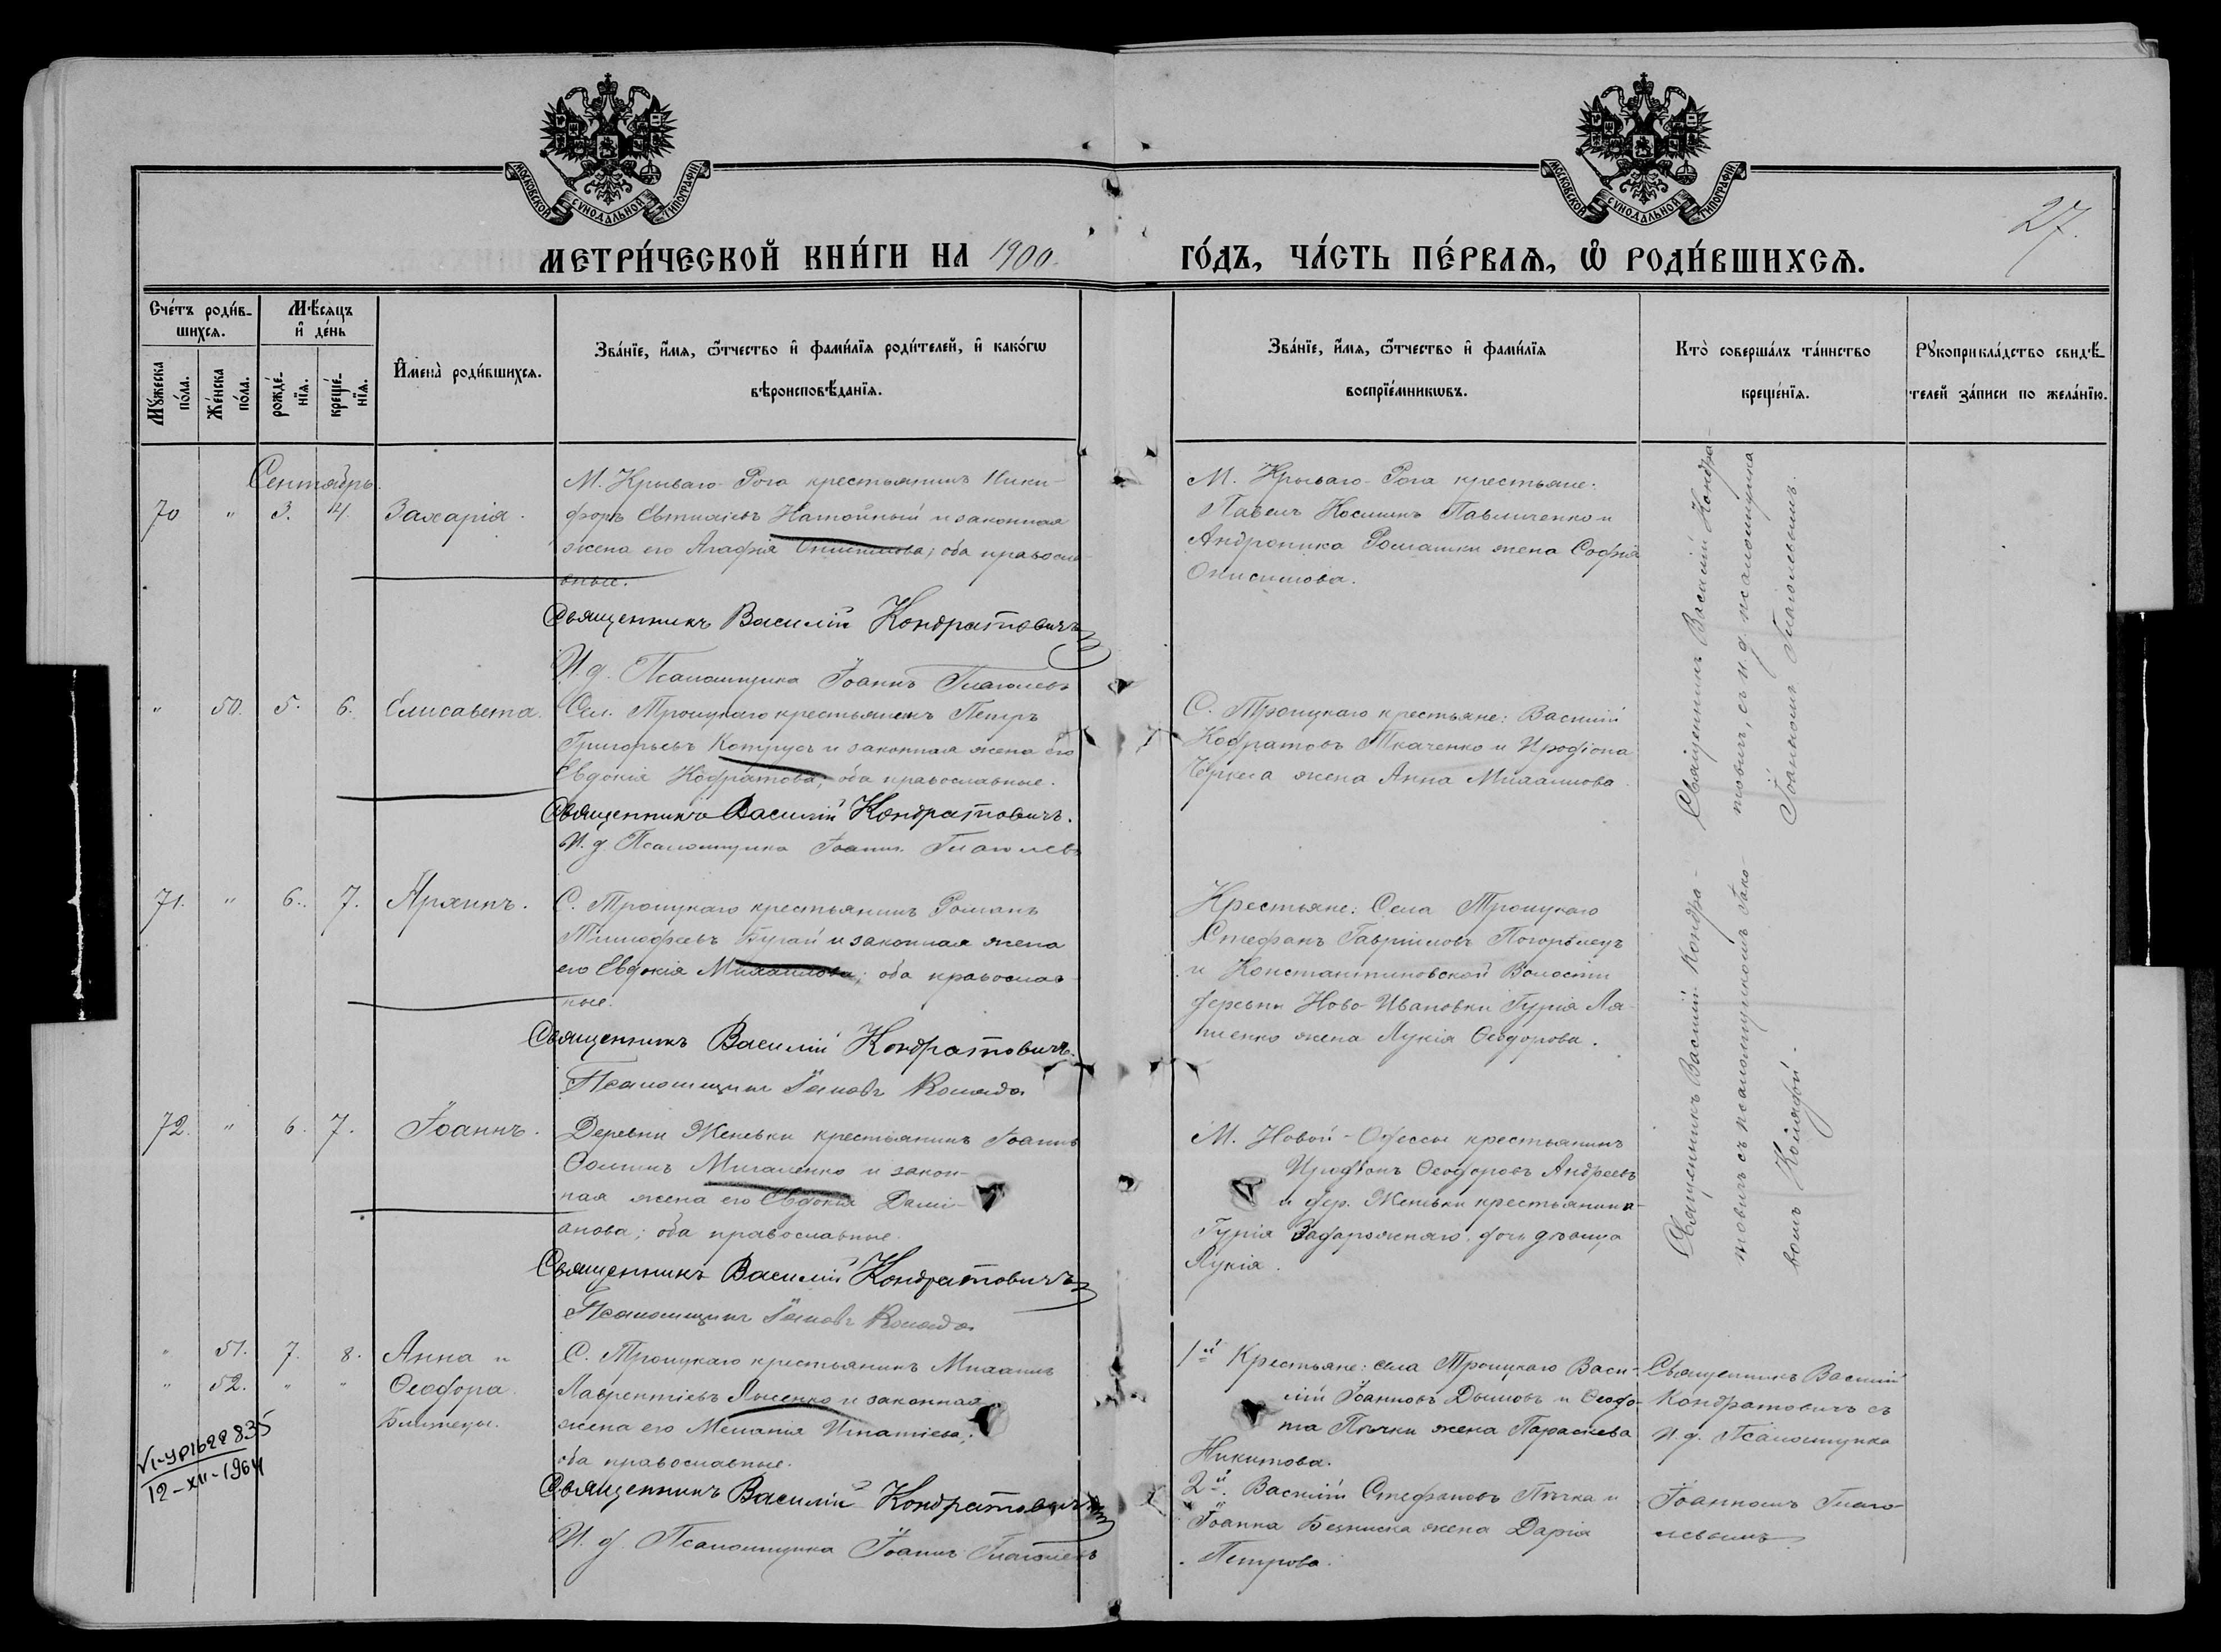 МОСКОВСКОЙ СѴНОДАЛЬНОЙ ТИПОГРАФІИ
МОСКОВСКОЙ СѴНОДАЛЬНОЙ ТИПОГРАФІИ
27.
МЕТРИ́ЧЕСКОЙ КНИ́ГИ НА 1900. ГО́ДЪ, ЧА́СТЬ ПЕ́РВАѦ, Ѡ҆ РОДИ́ВШИХСѦ.
Сче́тъ роди́в-
шихсѧ.
Мꙋ́жеска по́ла.
Же́нска по́ла.
Мѣ́сѧцъ
и҆ де́нь
рожде́-
нїѧ.
креще́-
нїѧ.
И҆мена̀ роди́вшихсѧ.
Зва́нїе, и҆́мѧ, ѻ҆́тчество и҆ фами́лїѧ роди́телей, и҆ како́гѡ
вѣроисповѣ́данїѧ.
Зва́нїе, и҆́мѧ, ѻ҆́тчество и҆ фами́лїѧ
воспрїе́мникѡвъ.
Кто̀ соверша́лъ та́инство
креще́нїѧ.
Рꙋкоприкла́дство свидѣ́-
телей за́писи по жела́нїю.
Сентябрь.
70 " 3. 4. Захарія.
М. Криваго-Рога крестьянинъ Ники-
форъ Евтихіевъ и законная
жена его Агафія Онисимова; оба правосла-
вные.
Священникъ Василій Кондратовичъ
И. д. Псаломщика Іоаннъ Глаголевъ
М. Криваго-Рога крестьяне:
Павелъ Косминъ Павличенко и
Андроника Ромашки жена Софія
Онисимова.
Священникъ Василій Кондра-
товичъ, съ и. д. псаломщика
Іоанномъ Глаголевымъ.
" 50. 5. 6. Елисавета.
Сел. Троицкаго крестьянинъ Петръ
Григорьевъ Котрусъ и законная жена его
Евдокія Кодратова; оба православные.
Священникъ Василій Кондратовичъ.
И. д. Псаломщика Іоаннъ Глаголевъ
С. Троицкаго крестьяне: Василій
Кодратовъ Ткаченко и Иродіона
Черкеса жена Анна Михаилова.
71. " 6. 7.
С. Троицкаго крестьянинъ Романъ
Тимофеевъ Бугай и законная жена
его Евдокія Михаилова; оба православ-
ные.
Священникъ Василій Кондратовичъ.
Псаломщикъ Іаковъ Коляда
Крестьяне: Села Троицкаго
Стефанъ Гавриловъ Погорѣлецъ
и Константиновской Волости
деревни Ново-Ивановки Гурія Ля-
шенко жена Лукія Ѳеодорова.
Священникъ Василій Кондра-
товичъ съ псаломщикомъ Іако-
вомъ Колядой.
72. " 6. 7. Іоаннъ.
Деревни Женевки крестьянинъ Іоаннъ
Ѳоминъ Михаленко и закон-
ная жена его Евдокія Дамі-
анова; оба православные.
Священникъ Василій Кондратовичъ
Псаломщикъ Іаковъ Коляда
М. Новой-Одессы крестьянинъ
Иродіонъ Ѳеодоровъ Андреевъ
и дер. Женевки крестьянина
Гурія Задарожняго дочь дѣвица
Лукія.
" 51. 7. 8. Анна и
" 52. " " Ѳеодора.
Близнецы.
С. Троицкаго крестьянинъ Михаилъ
Лаврентіевъ Лысенко и законная
жена его Меланія Игнатіева;
оба православные.
Священникъ Василій Кондратовичъ
И. д. Псаломщика Іоаннъ Глаголевъ
1й Крестьяне: села Троицкаго Васи-
лій Іоанновъ Дымовъ и Ѳеодо-
та Пѣчки жена Параскева
Никитова.
2й. Василій Стефановъ Пѣчка и
Іоанна Безниска жена Дарія
Петрова.
Священникъ Василій
Кондратовичъ съ
и. д. Псаломщика
Іоанномъ Глаго-
левымъ.
VI-УР1622835
12-XII-1964